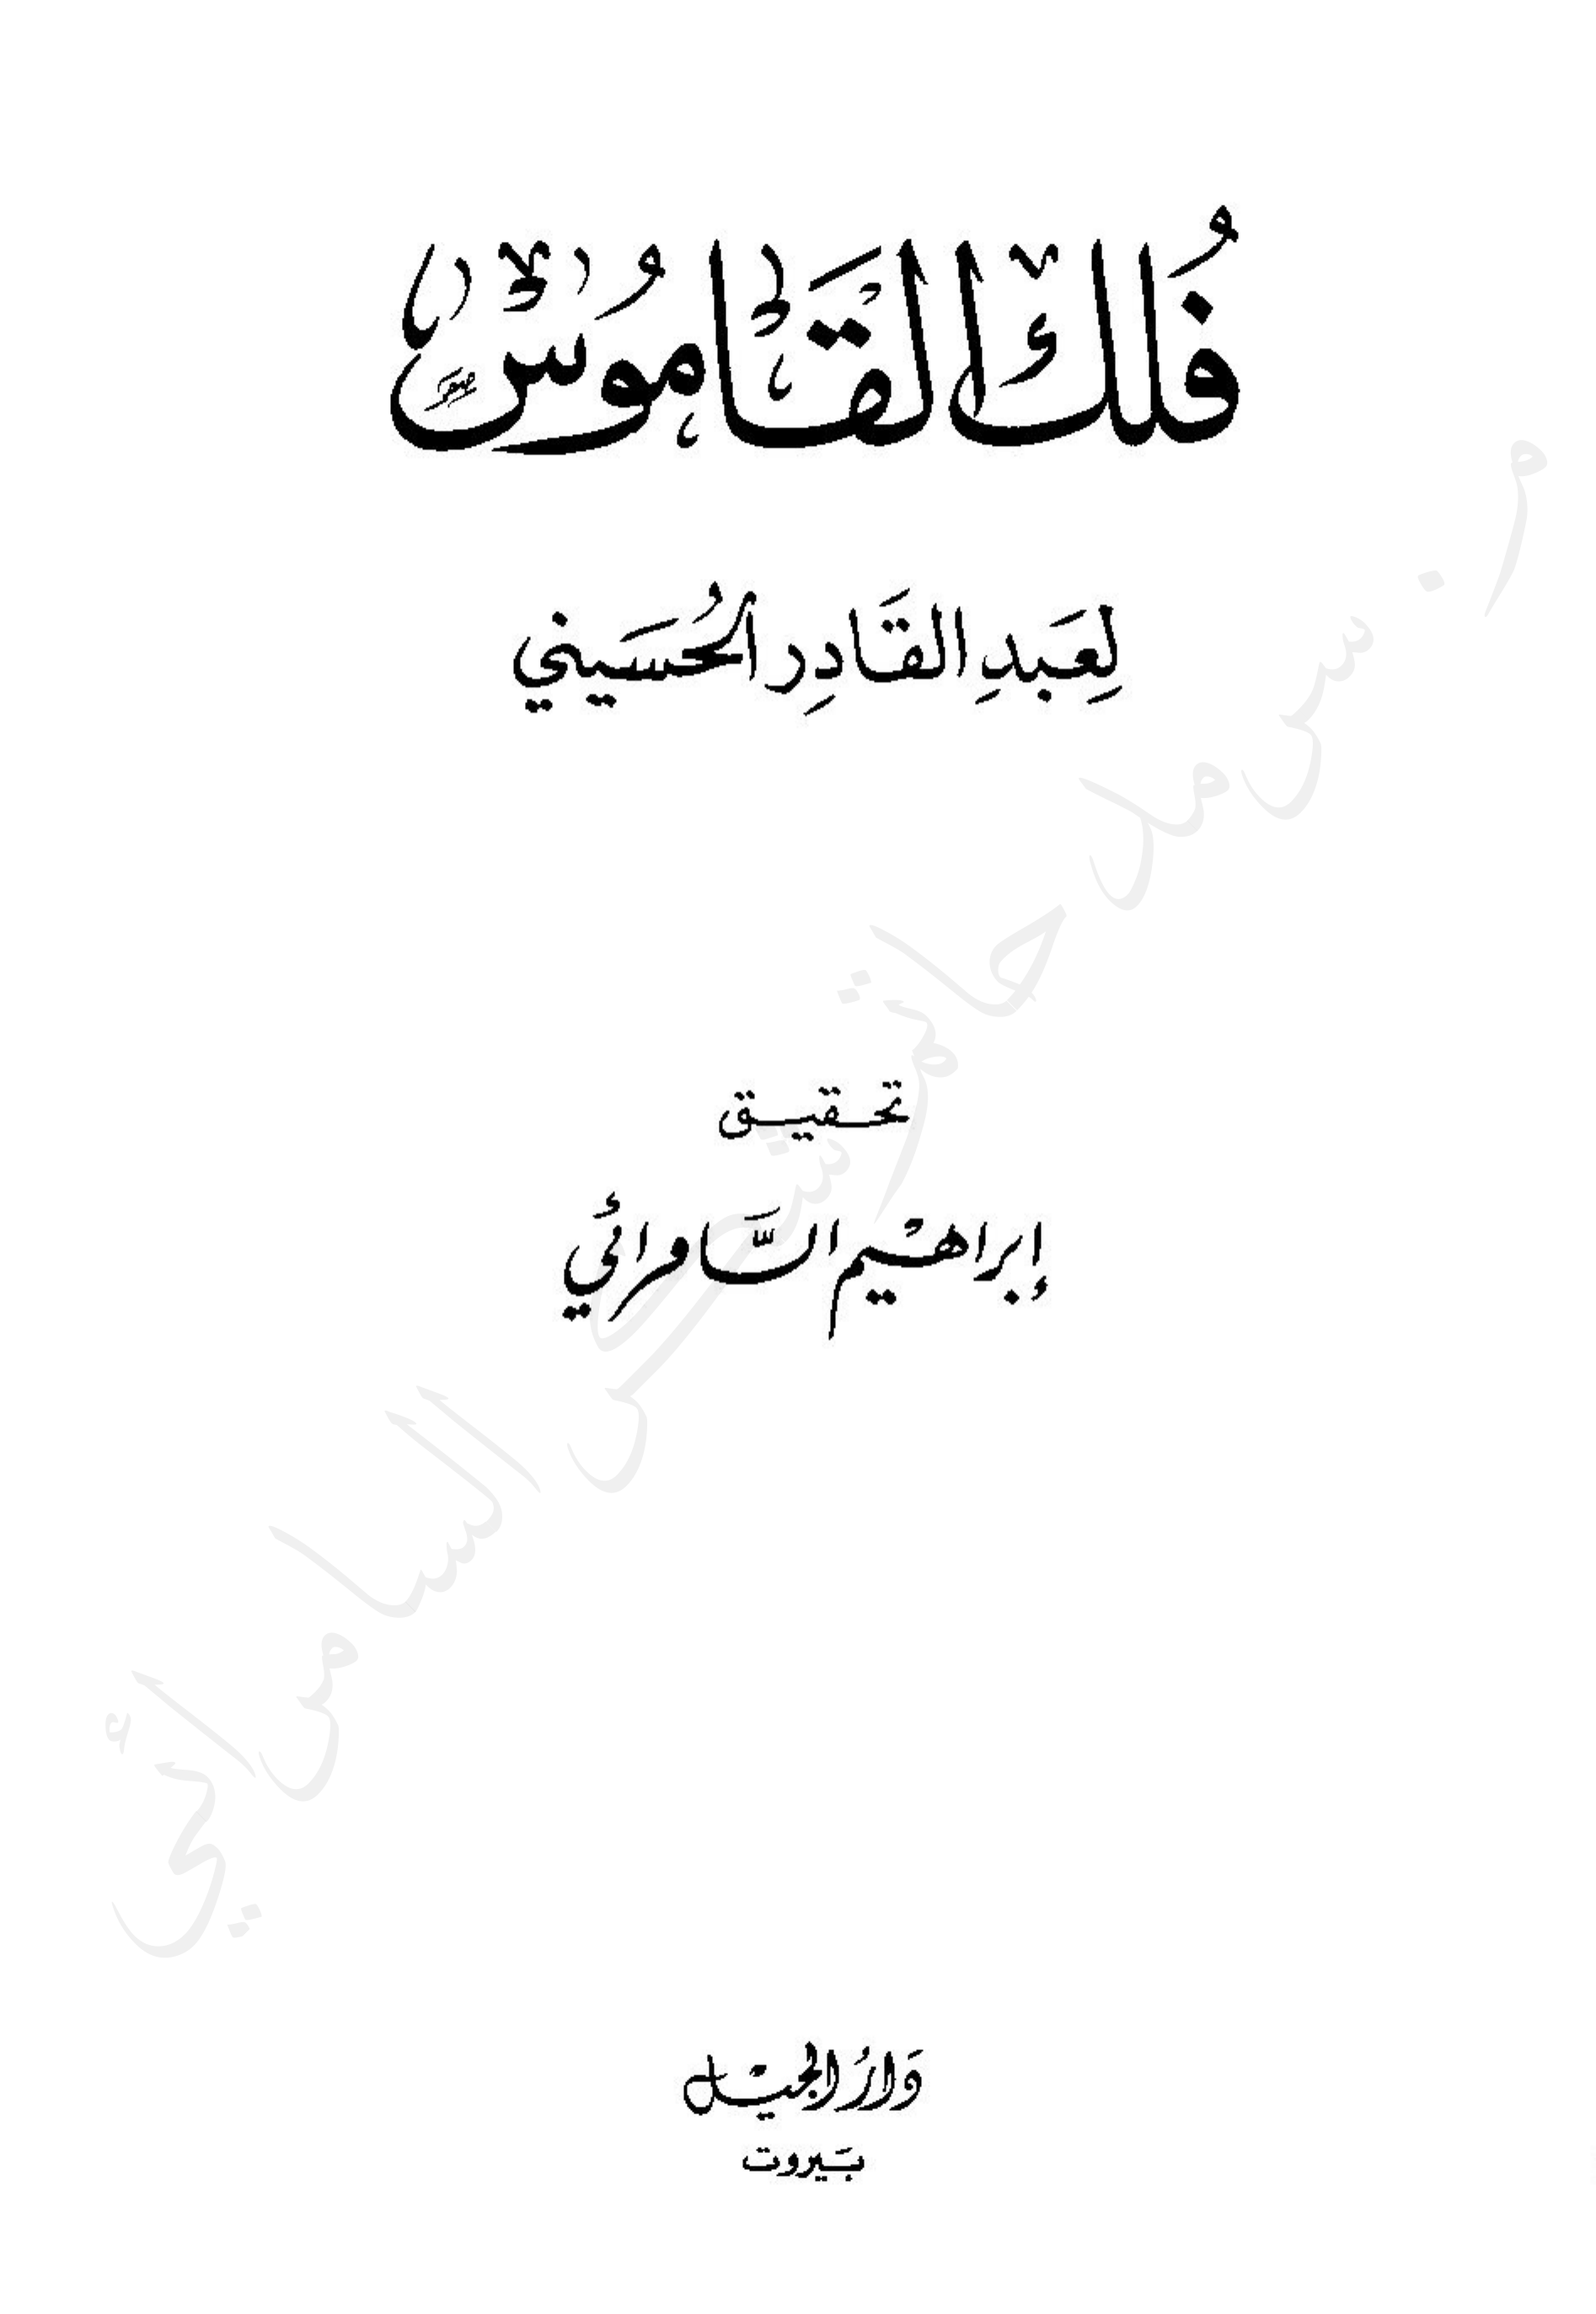 فُلك القَاموُس
لِعَبدِ القَادِر الحُسَيني
تحقيق
إبراهيم السَّامرائي
دَارُ الجيل
بَيروت
م. سرمد حاتم شكر السامرائي